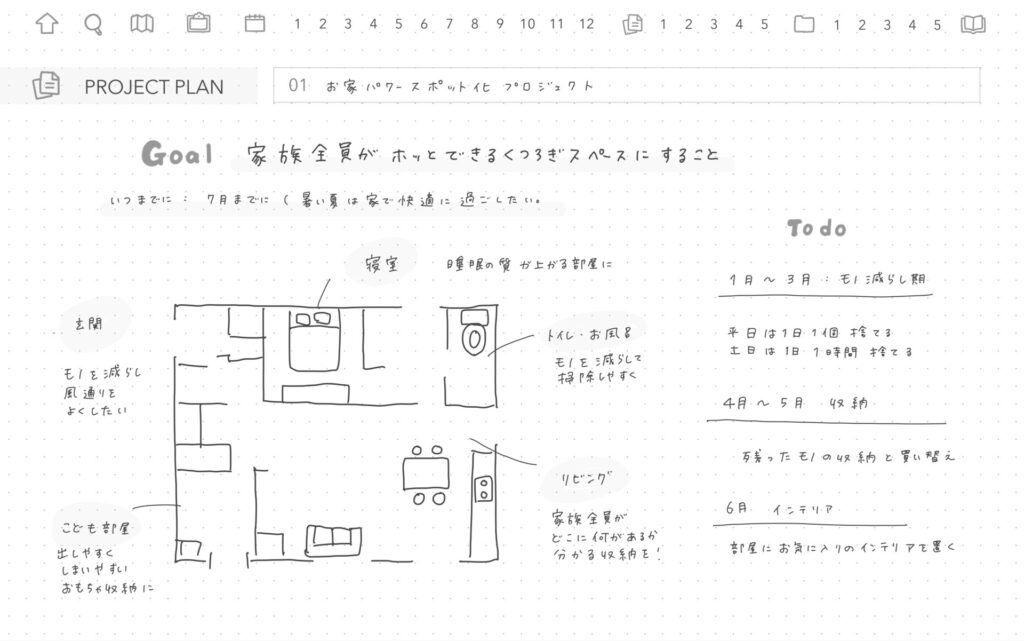 1 2 3 4 5 6 7 8 9 10 11 12 1 2 3 4 5 1 2 3 4 5
PROJECT PLAN
01 お家パワースポット化プロジェクト
Goal 家族全員がホッとできるくつろぎスペースにすること
いつまでに : 7月までに ( 暑い夏は家で快適に過ごしたい。
寝室
睡眠の質が上がる部屋に
玄関
モノを減らし
風通りを
よくしたい
トイレ・お風呂
モノを減らして
掃除しやすく
リビング
家族全員が
どこに何があるか
分かる収納を!
こども部屋
出しやすく
しまいやすい
おもちゃ収納に
Todo
1月〜3月 : モノ減らし期
平日は1日1個捨てる
土日は1日1時間捨てる
4月〜5月 収納
残ったモノの収納と買い替え
6月 インテリア
部屋にお気に入りのインテリアを置く